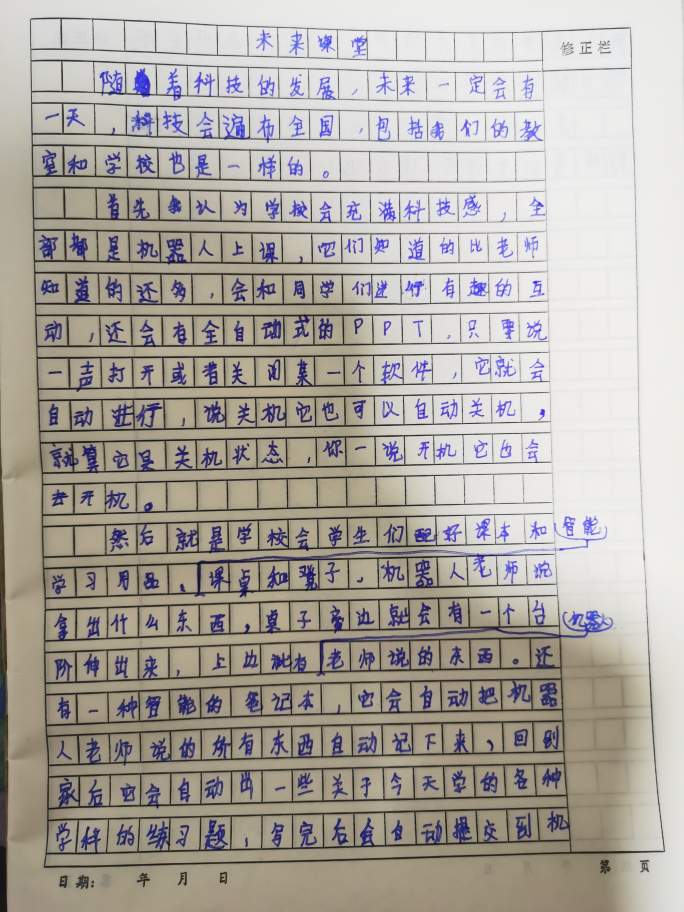 未来课堂
修正栏
随着科技的发展，未来一定会有
一天，科技会遍布全国，包括我们的教
室和学校也是一样的。
首先我认为学校会充满科技感，全
部都是机器人上课，它们知道的比老师
知道的还多，会和同学们进行有趣的互
动，还会有全自动式的PPT，只要说
一声打开或者关闭某一个软件，它就会
自动进行，说关机它也可以自动关机，
就算它是关机状态，你一说开机它也会
去开机。
然后就是学校会学生们配好课本和智能
学习用品、课桌和凳子，机器人老师说
拿出什么东西，桌子旁边就会有一个台机器人
阶伸出来，上边就有老师说的东西。还
有一种智能的笔记本，它会自动把机器
人老师说的所有东西自动记下来，回到
家后它会自动出一些关于今天学的各种
学科的练习题，写完后会自动提交到机
日期： 年 月 日
第 页